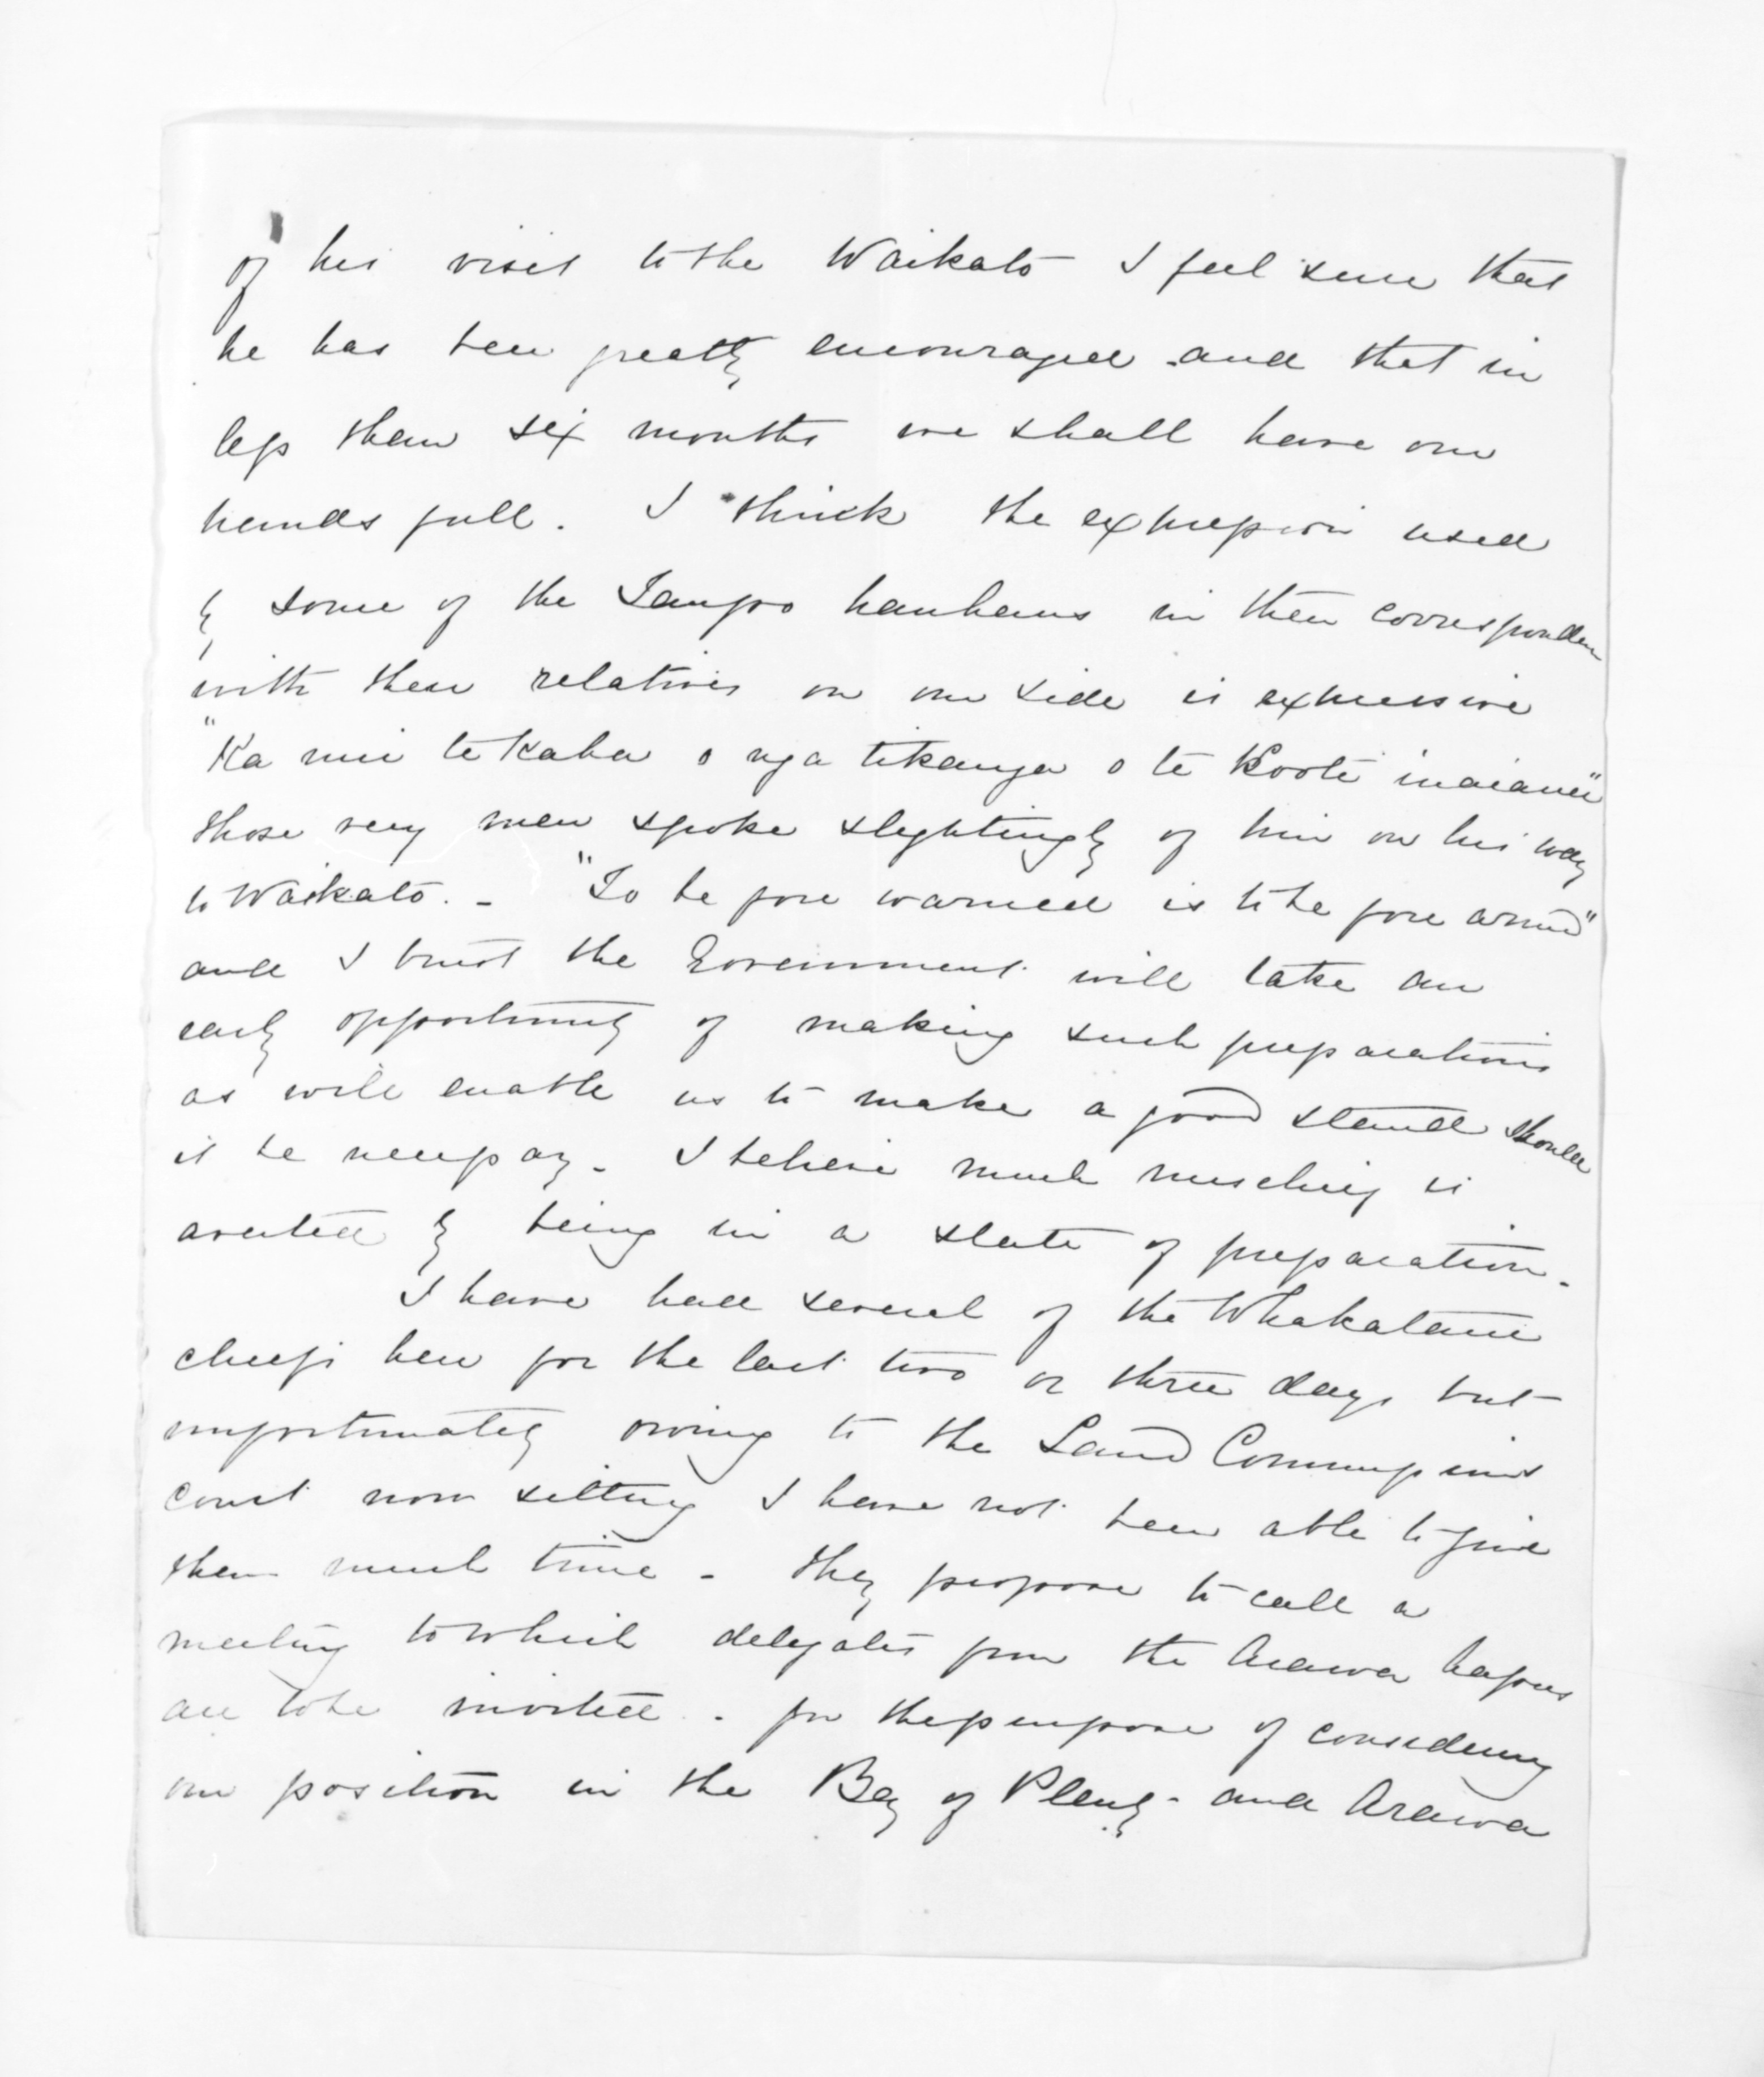 of his visit to the Waikato I feel sure that
he has been greatly encouraged and that in
less than six months we shall have our
hands full. I think the expression used
by some of the Taupo hauhaus in their corresponden
with their relatives on our side is expressive
"Ka nui te kaha o nga tikanga o te Kooti inaianei"
those very men spoke slightingly of him on his way
to Waikato. - "To be fore warned is to be fore armed"
and I trust the Government will take an
early opportunity of making such preparations
as will enable us to make a good stand should
it be necessary - I believe much mischief is
averted by being in a state of preparation -
I have had several of the Whakatane
chiefs here for the last two or three days but
unfortunately owing to the Land Commissions
court now sitting I have not been able to give
them much time - they propose to call a
meeting to which delegates from the Arawa hapus
are to be invited - for the purpose of considering
our position in the Bay of Plenty - and Arawa